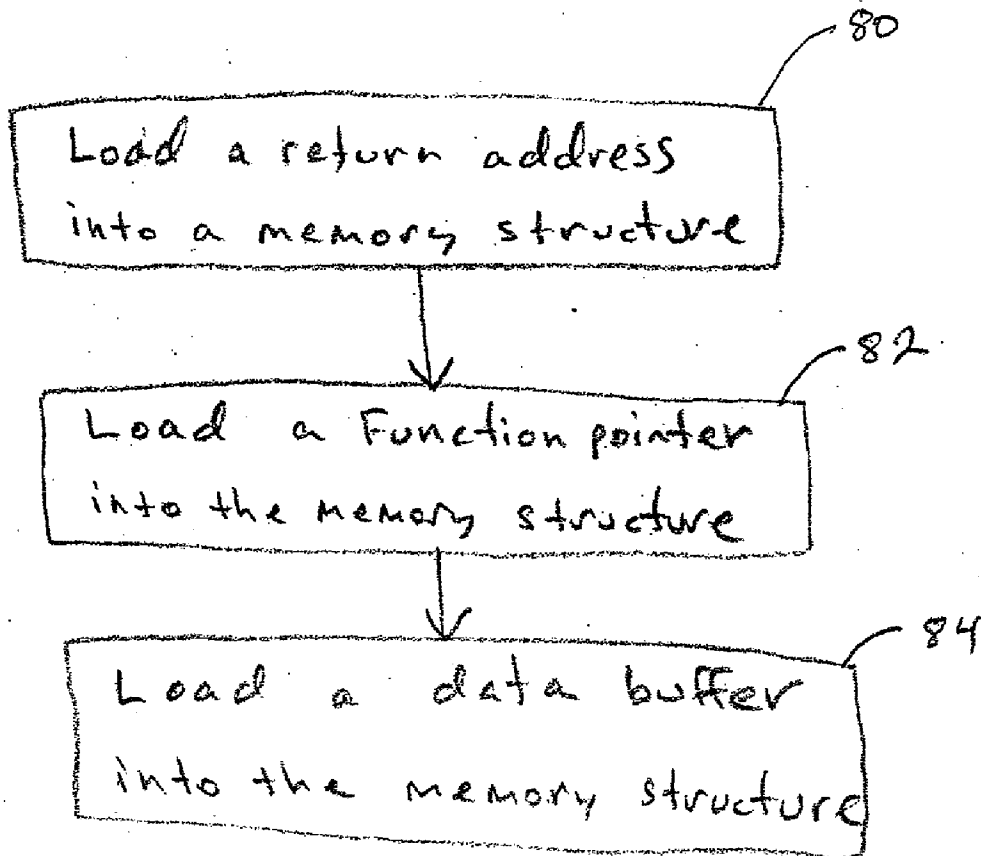 80
Load a return address
into a memory structure
82
Load a Function pointer
into the memory structure
84
Load a data buffer
into the memory structure